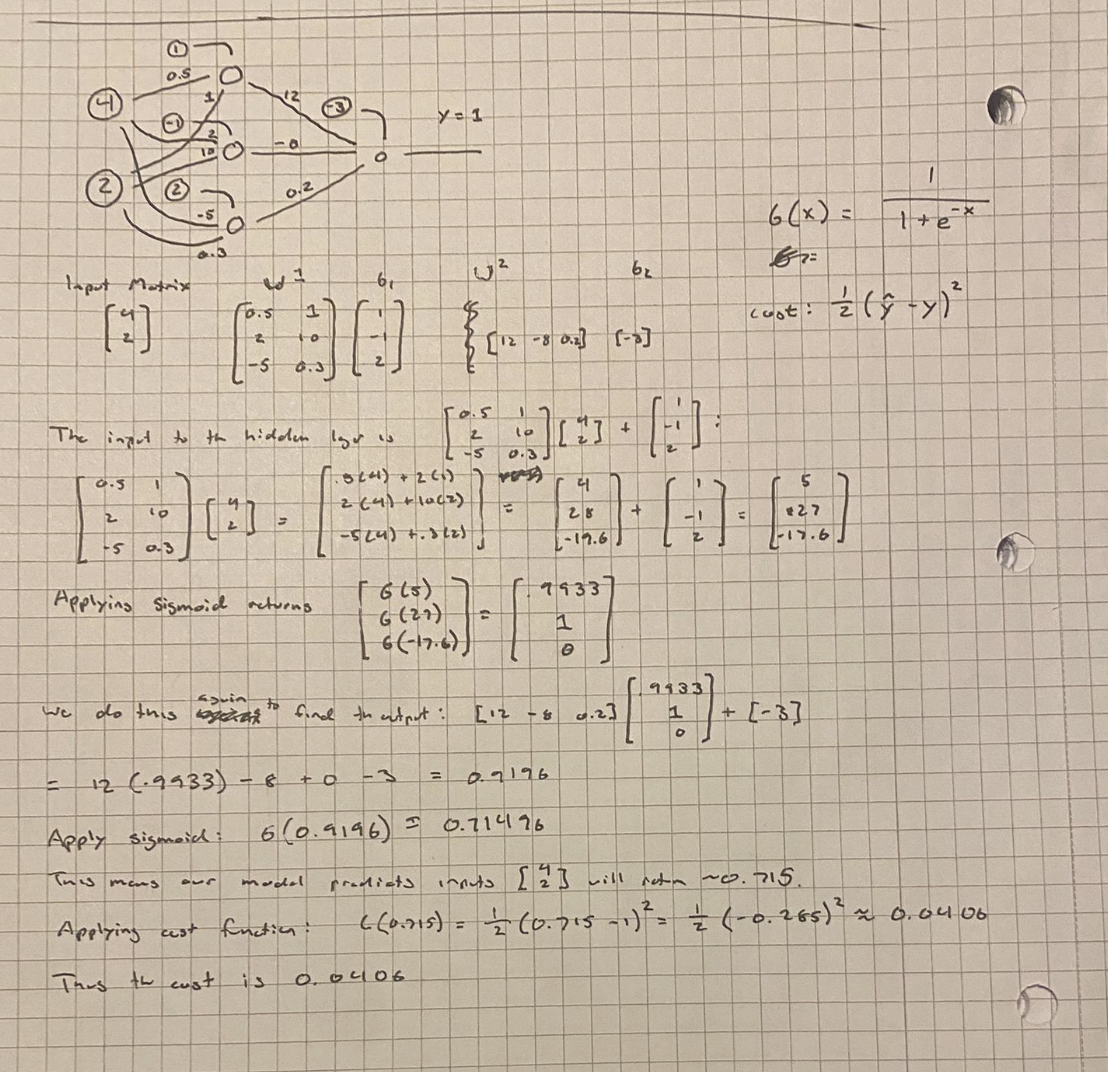 1
0.5
4
1
12
-3
y = 1
-1
2
10
-8
2
2
-5
0.2
0.3
σ(x) = 1 / (1 + e^-x)
Input Matrix W^1 b_1 W^2 b_2
[4 2] [0.5 1; 2 10; -5 0.3] [1 -1 2] [12 -8 0.2] [-3]
cost: 1/2 (ŷ - y)^2
The input to th hidden layr is [0.5 1; 2 10; -5 0.3] [4 2] + [1 -1 2] :
[0.5 1; 2 10; -5 0.3] [4 2] = [.5(4) + 2(1); 2(4) + 10(2); -5(4) + .3(2)] = [4 28 -19.6] + [1 -1 2] = [5 27 -17.6]
Applying sigmoid returns [σ(5) σ(27) σ(-17.6)] = [.9933 1 0]
We do this again to find th output: [12 -8 0.2] [.9933 1 0] + [-3]
= 12 (.9933) - 8 + 0 - 3 = 0.9196
Apply sigmoid: σ(0.9196) = 0.71496
This means our model predicts inputs [4 2] will return ~0.715.
Applying cost function: C(0.715) = 1/2 (0.715 - 1)^2 = 1/2 (-0.285)^2 ≈ 0.0406
Thus th cost is 0.0406